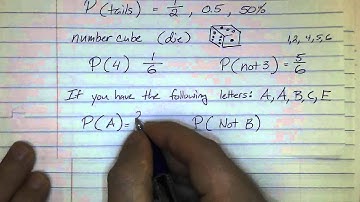 P(tails) = 1/2, 0.5, 50%
number cube (die) 1,2,4,5,6
P(4) 1/6 P(not 3) = 5/6
If you have the following letters: A, A, B, C, E
P(A) = 2 P(Not B)